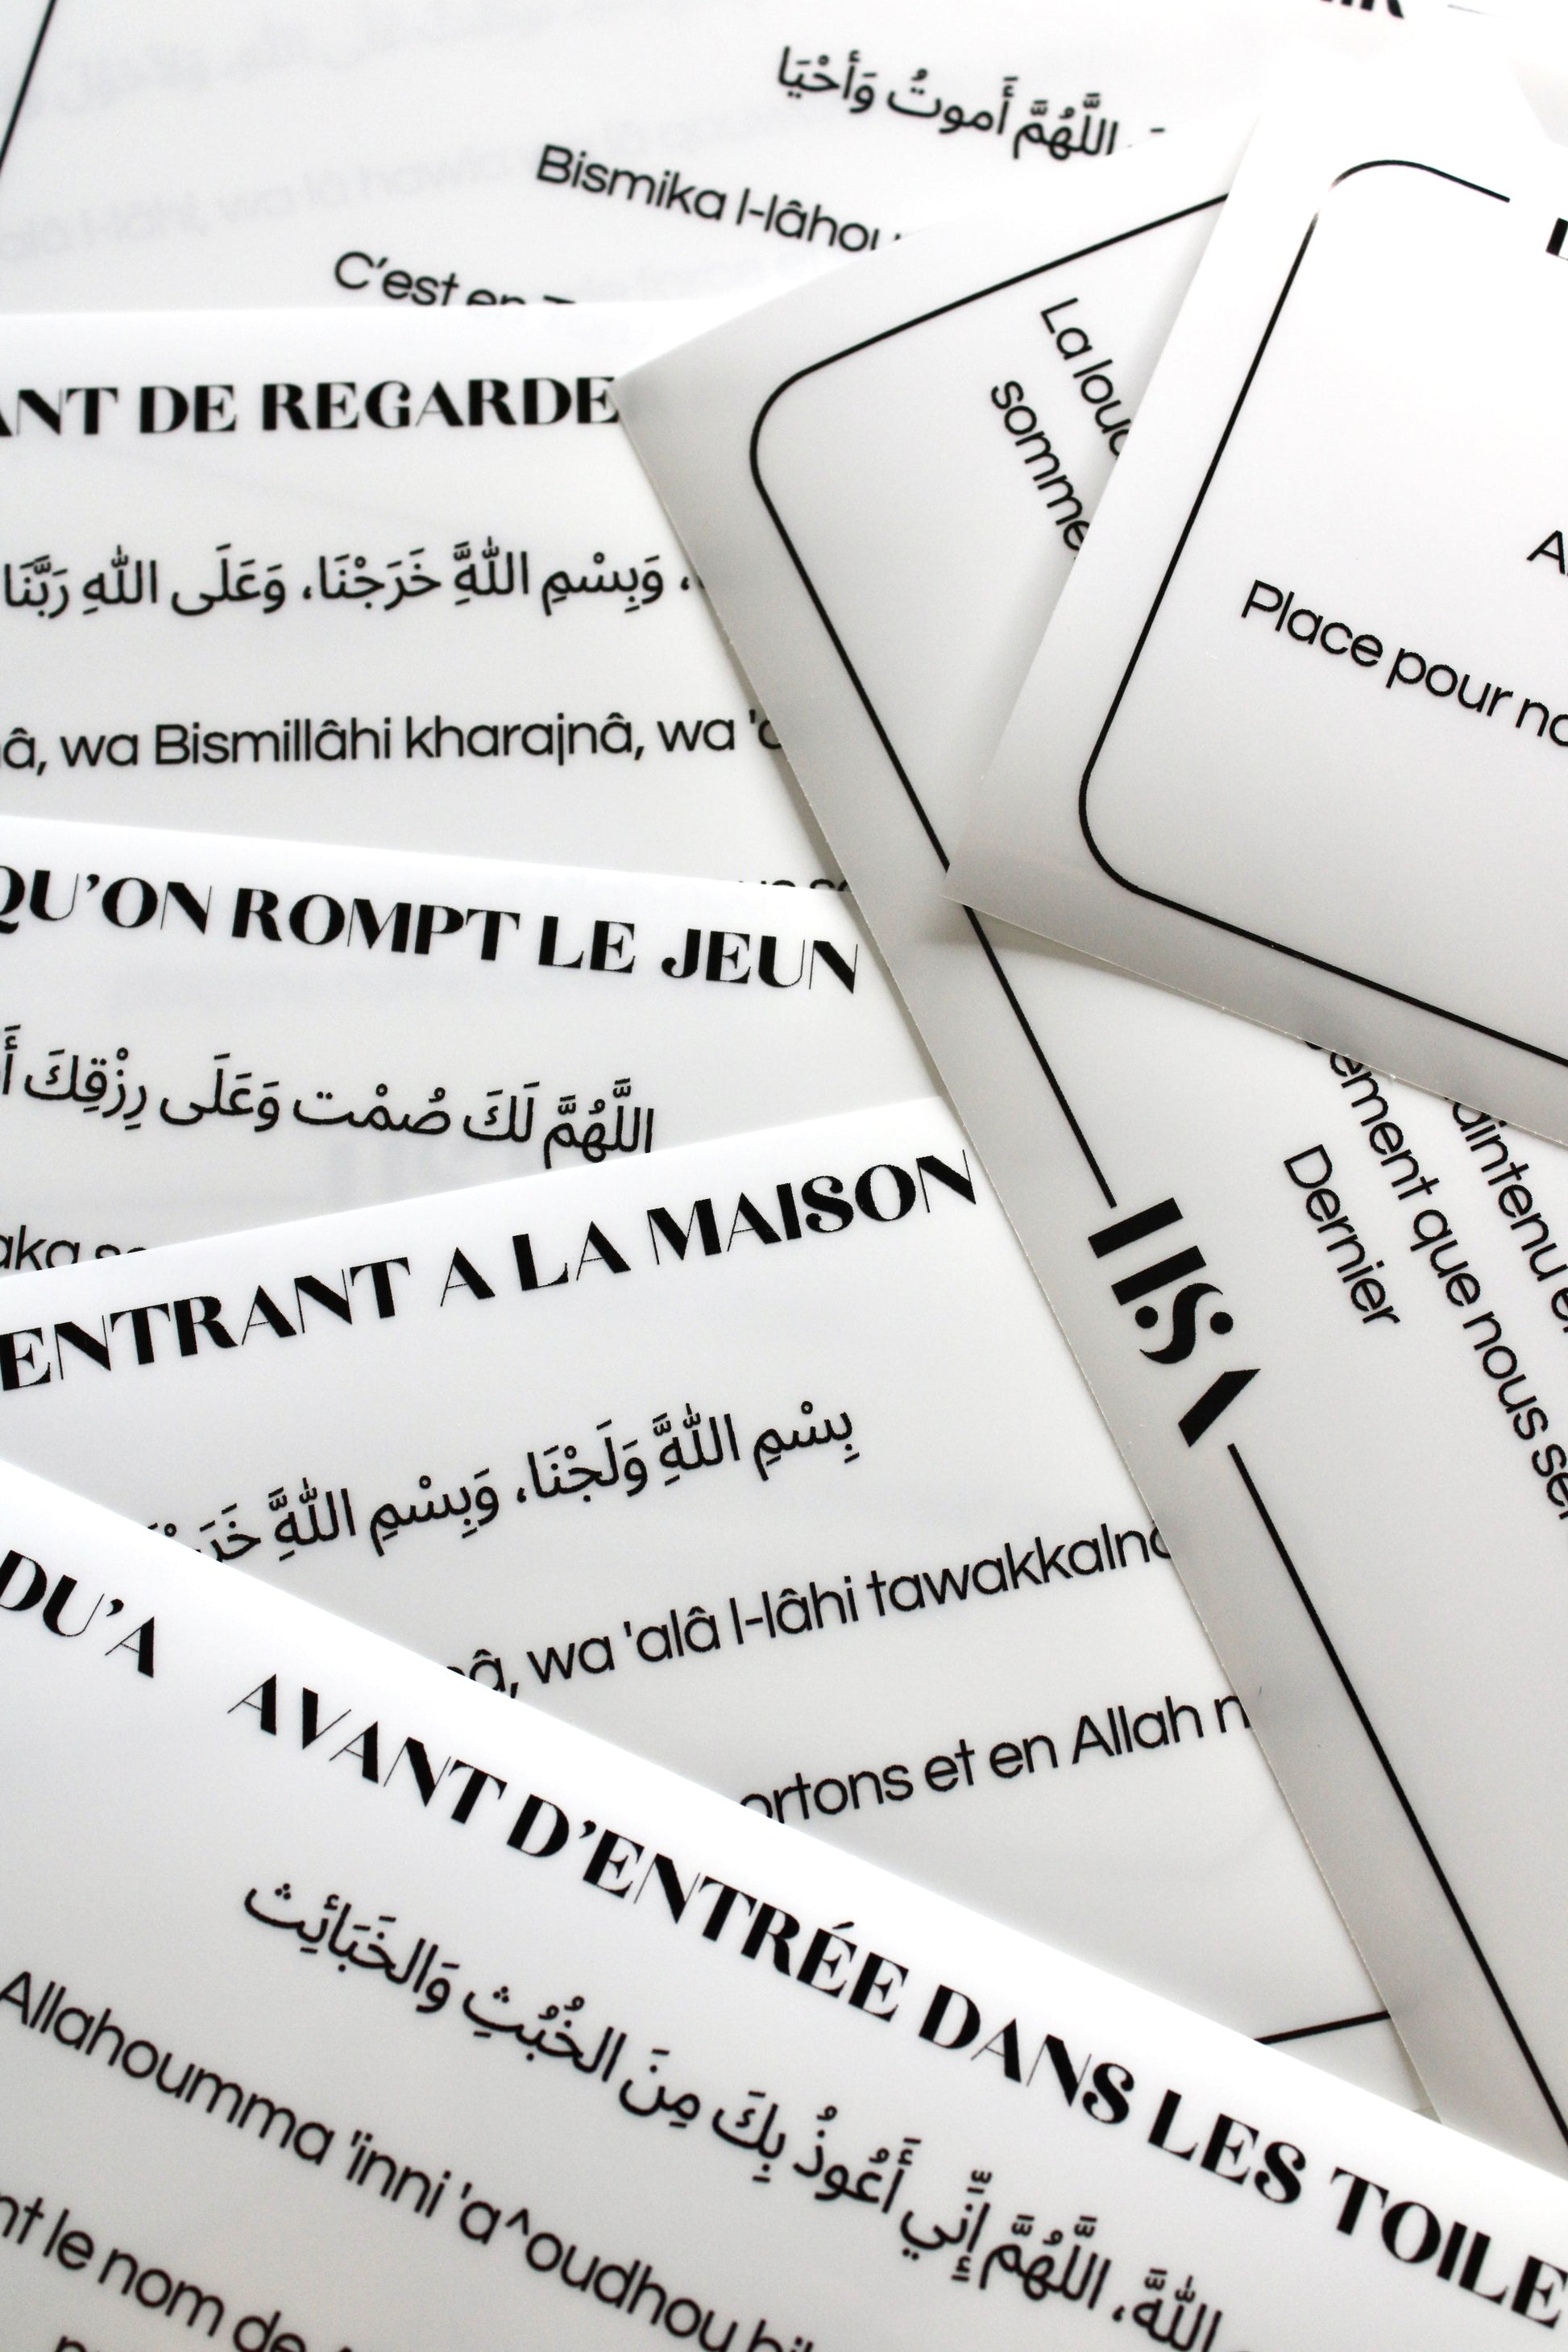 اللَّهُمَّ أَموتُ وَأَحْيَا
Bismika l-lâhou
C'est en
DE REGARDE
وَبِسْمِ اللهَِّ خَرَجْنَا، وَعَلَى اللهِ رَبَّنَا
wa Bismillâhi kharajnâ, wa
QU'ON ROMPT LE JEUN
اللَّهُمَّ لَكَ صُمْت وَعَلَى رِزْقِكَ
ENTRANT A LA MAISON
بِسْمِ اللهَِّ وَلَجْنَا، وَبِسْمِ اللهَِّ
wa 'alâ l-lâhi tawakkalnâ
ortons et en Allah n
DU'A AVANT D'ENTRÉE DANS LES TOILE
اللهَِّ، اللَّهُمَّ إِنِّي أَعُوذُ بِكَ مِنَ الخُبُثِ وَالخَبَائِث
Allahoumma 'inni 'a^oudhou bi
nt le nom de
La lou
somme
aintenu e
sement que nous se
Dernier
Place pour no